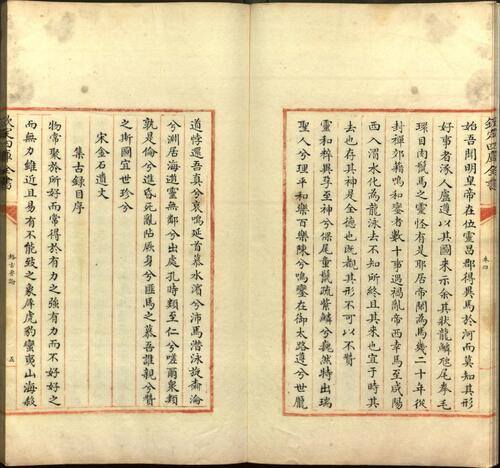 始吾聞明皇帝在位靈昌郡得異馬於河而莫知其形
好事者涿人盧遵以其圖來示余其狀龍鱗虺尾拳毛
環目肉鬣馬之靈怪有是耶居帝閑為馬幾二十年從
封禪郊籍鳴和鑾者數十事遇禍亂帝西幸馬至咸陽
西入渭水化為龍泳去不知所終且其來也宜于時其
去也存其神是全德也既覩其形不可以不贊
靈和粹異孕至神兮倮尾童鬣疏紫鱗兮巍然特出瑞
聖人兮理平和樂百樂陳兮鳴鑾在御太路遵兮世厖
卷四
欽定四庫全書
道悖還吾真兮哀鳴延首慕水濱兮沛焉潛泳旋齋淪
兮淵居海逝靈無鄰兮出處孔時類至仁兮嗟爾衆類
孰是倫兮進昏死亂阽厥身兮匪馬之慕吾誰親兮贊
之斯圖宜世珍兮
宋金石遺文
集古錄目序
物常聚於所好而常得於有力之強有力而不好好之
而無力雖近且易有不能致之象犀虎豹蠻夷山海殺
格古要論
五